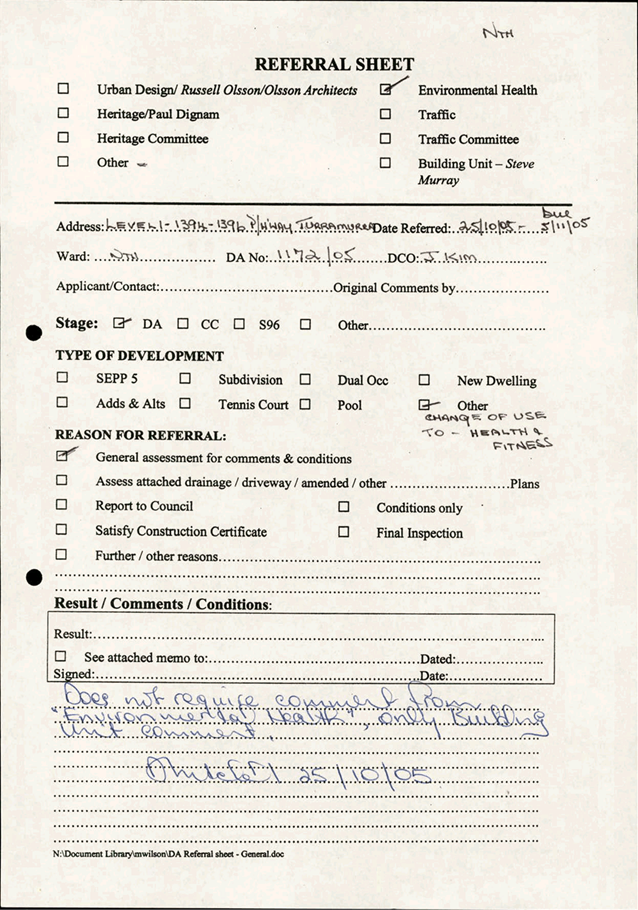 NTH
REFERRAL SHEET
☐ Urban Design/ Russell Olsson/Olsson Architects ☑ Environmental Health
☐ Heritage/Paul Dignam ☐ Traffic
☐ Heritage Committee ☐ Traffic Committee
☐ Other ☐ Building Unit – Steve Murray
Address: LEVEL 1 - 1394-1396 P/H'WAY TURRAMURRA Date Referred: 25/10/05 - due 5/11/05
Ward: NTH DA No: 1172/05 DCO: J KIM
Applicant/Contact: Original Comments by
Stage: ☑ DA ☐ CC ☐ S96 ☐ Other
TYPE OF DEVELOPMENT
☐ SEPP 5 ☐ Subdivision ☐ Dual Occ ☐ New Dwelling
☐ Adds & Alts ☐ Tennis Court ☐ Pool ☑ Other
CHANGE OF USE
TO - HEALTH &
FITNESS
REASON FOR REFERRAL:
☑ General assessment for comments & conditions
☐ Assess attached drainage / driveway / amended / other Plans
☐ Report to Council ☐ Conditions only
☐ Satisfy Construction Certificate ☐ Final Inspection
☐ Further / other reasons
Result / Comments / Conditions:
Result:
☐ See attached memo to: Dated:
Signed: Date:
Does not require comment from
"Environmental Health", only Building
Unit comment.
25/10/05
N:\Document Library\mwilson\DA Referral sheet - General.doc